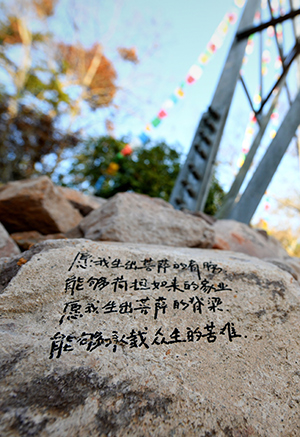 愿我生出菩萨的肩膀,
能够荷担如来的家业.
愿我生出菩萨的脊梁,
能够承载众生的苦难.